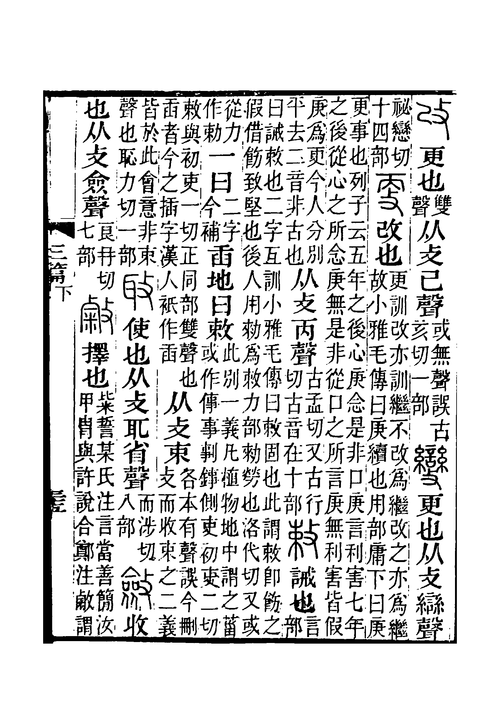 改更也雙聲从攴己聲或無聲誤古亥切一部變更也从攴䜌聲
祕戀切十四部㪅改也更訓改亦訓繼不改為繼改之亦為繼故小雅毛傳曰庚續也用部庸下曰庚
更事也列子云五年之後心庚念是非口庚言利害七年之後從心之所念庚無是非從口之所言庚無利害皆假
庚為更今人分別平去二音非古也从攴丙聲古孟切又古行切古音在十部敕誡也言部
曰誡敕也二字互訓小雅毛傳曰敕固也此謂敕卽飭之假借飭致堅也後人用勑為敕力部勑勞也洛代切又或
從力作勅一曰二字今補臿地曰敕此別一義凡植物地中謂之菑或作傳事剚側吏初吏二切
敕與初吏一切正同部雙聲也臿者今之插字漢人衹作臿从攴束各本有聲誤今刪攴而收束之二義
皆於此會意非束聲也恥力切一部使也从攴耴省聲而涉切八部斂收
也从攴僉聲良冉切七部敹擇也粊誓某氏注言當善簡汝甲冑與許說合鄭注敹謂
三篇下